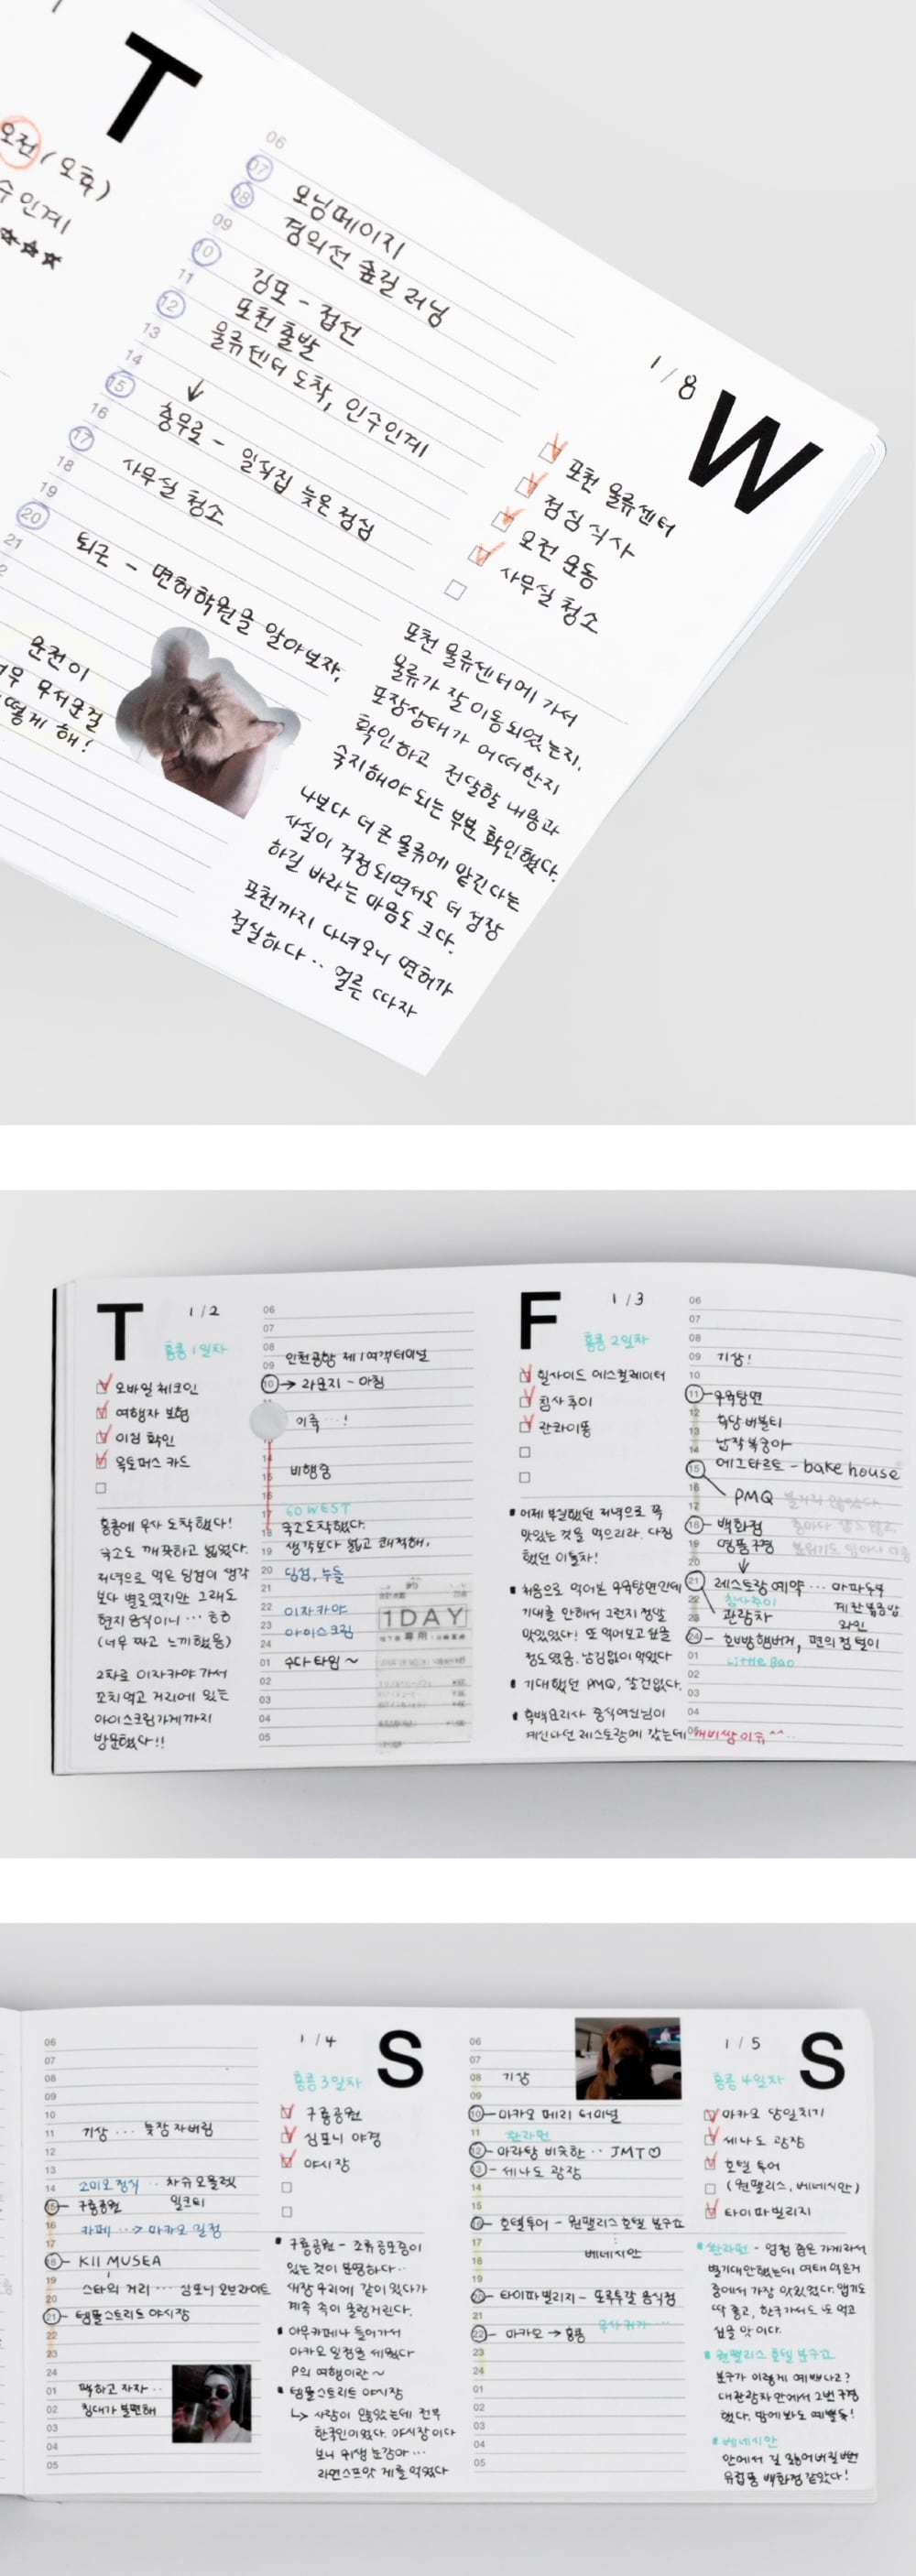 T
오전 (오후)
수인계
06
07 모닝페이지
08 경의선 숲길 러닝
09
10 김포 - 접선
11 포천 출발
12 물류센터 도착, 인수인계
13
14 ↓
15 충무로 - 일식집 늦은 점심
16
17 사무실 청소
18
19
20 퇴근 - 면허학원을 알아보자,
21
운전이
무서운걸
떻게 해!
1/8 W
포천 물류센터
점심 식사
오전 운동
사무실 청소
포천 물류센터에 가서
물류가 잘 이동되었는지.
포장상태가 어떠한지
확인하고 전달할 내용과
숙지해야 되는 부분 확인했다.
나보다 더 큰 물류에 맡긴다는
사실이 걱정되면서도 더 성장
하길 바라는 마음도 크다.
포천까지 다녀오니 면허가
절실하다.. 얼른 따자
T 1/2
홍콩 1일차
모바일 체크인
여행자 보험
이심 확인
옥토퍼스 카드
홍콩에 무사 도착했다!
숙소도 깨끗하고 넓었다.
저녁으로 먹은 딤섬이 생각
보다 별로였지만 그래도
현지 음식이니 … 흐흐
(너무 짜고 느끼했음)
2차로 이자카야 가서
꼬치먹고 거리에 있는
아이스크림가게까지
방문했다!!
06
07
08
09 인천공항 제1여객터미널
10 → 라운지 - 아침
이륙…!
14
15 비행중
16
17 60 WEST
18 숙소도착했다.
19 생각보다 넓고 쾌적해,
20 딤섬, 누들
21
22 이자카야
23 아이스크림
24
01 수다 타임~
02
03
04
05
1DAY
F 1/3
홍콩 2일차
힐사이드 에스컬레이터
침사추이
란콰이퐁
어제 부실했던 저녁으로 꼭
맛있는 것을 먹으리라. 다짐
했던 이틀차!
처음으로 먹어본 우육탕면인데
기대를 안해서 그런지 정말
맛있었다! 또 먹어보고 싶을
정도였음. 남김없이 먹었다
기대했던 PMQ, 살건없다.
흑백요리사 중식여신님이
계신다던 레스토랑에 갔는데
06
07
08
09 기상!
10
11 우육탕면
12 흑당 버블티
13
14 납작복숭아
15 에그타르트 - bake house
16 PMQ
17
18 백화점
19 명품구경
20 ↓
21 레스토랑 예약 … 마파두부
22 침사추이 계란볶음밥
23 관람차 와인
24 호바방햄버거, 편의점 털이
01 Little Bao
02
03
04
05
1/4 S
홍콩 3일차
구룡공원
심포니 야경
야시장
06
07
08
09
10
11 기상 … 늦잠 자버림
12
13
14 차슈 오믈렛
15 구룡공원 밀크티
16 카페 …> 마카오 일정
17
18 K11 MUSEA
19 스타의 거리 … 심포니 오브라이트
20
21 템플스트리트 야시장
22
23
24
01 팩하고 자자..
02 침대가 불편해
03
04
05
구룡공원 - 조류공포증이
있는 것이 분명하다..
새장 우리에 같이 있다가
계속 속이 울렁거린다.
아무카페나 들어가서
마카오 일정을 세웠다
P의 여행이란~
템플스트리트 야시장
↳ 사람이 많았는데 전부
한국인이었다. 야시장이다
보니 위생 눈감아…
라면스프맛 게를 먹었다
1/5 S
홍콩 4일차
마카오 당일치기
세나도 광장
호텔 투어
(윈팰리스, 베네시안)
타이파빌리지
06
07
08 기상
09
10 마카오 페리 터미널
11 완라면
12 마라탕 비슷한.. JMT♡
13 세나도 광장
14
15
16 호텔투어 - 윈팰리스호텔 분수쇼
17 베네시안
18
19
20 타이파빌리지 - 포루투갈 음식점
21 무사 귀가…
22 마카오 → 홍콩
23
24
01
02
03
04
05
완라면 - 엄청 좁은 가게라서
별기대안했는데 여태 먹은거
중에서 가장 맛있었다. 맵기도
딱 좋고, 한국가서도 또 먹고
싶을 맛이다.
윈팰리스 호텔 분수쇼
분수가 이렇게 예쁘다고?
대관람차 안에서 2번 구경
했다. 밤에 봐도 예쁠듯!
베네시안
안에서 길 잃어버릴뻔
유럽풍 백화점 같았다!